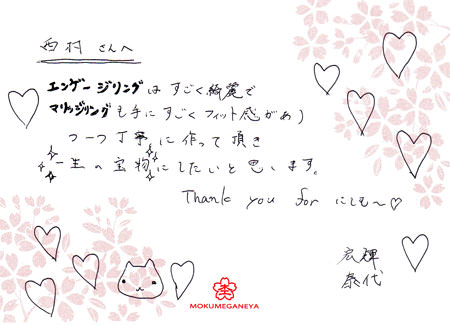 西村さんへ
エンゲージリングはすごく綺麗で
マリッジリングも手にすごくフィット感があり
一つ一つ丁寧に作って頂き
一生の宝物にしたいと思います。
Thank you for にしむ〜♡
宏輝
泰代
MOKUMEGANEYA